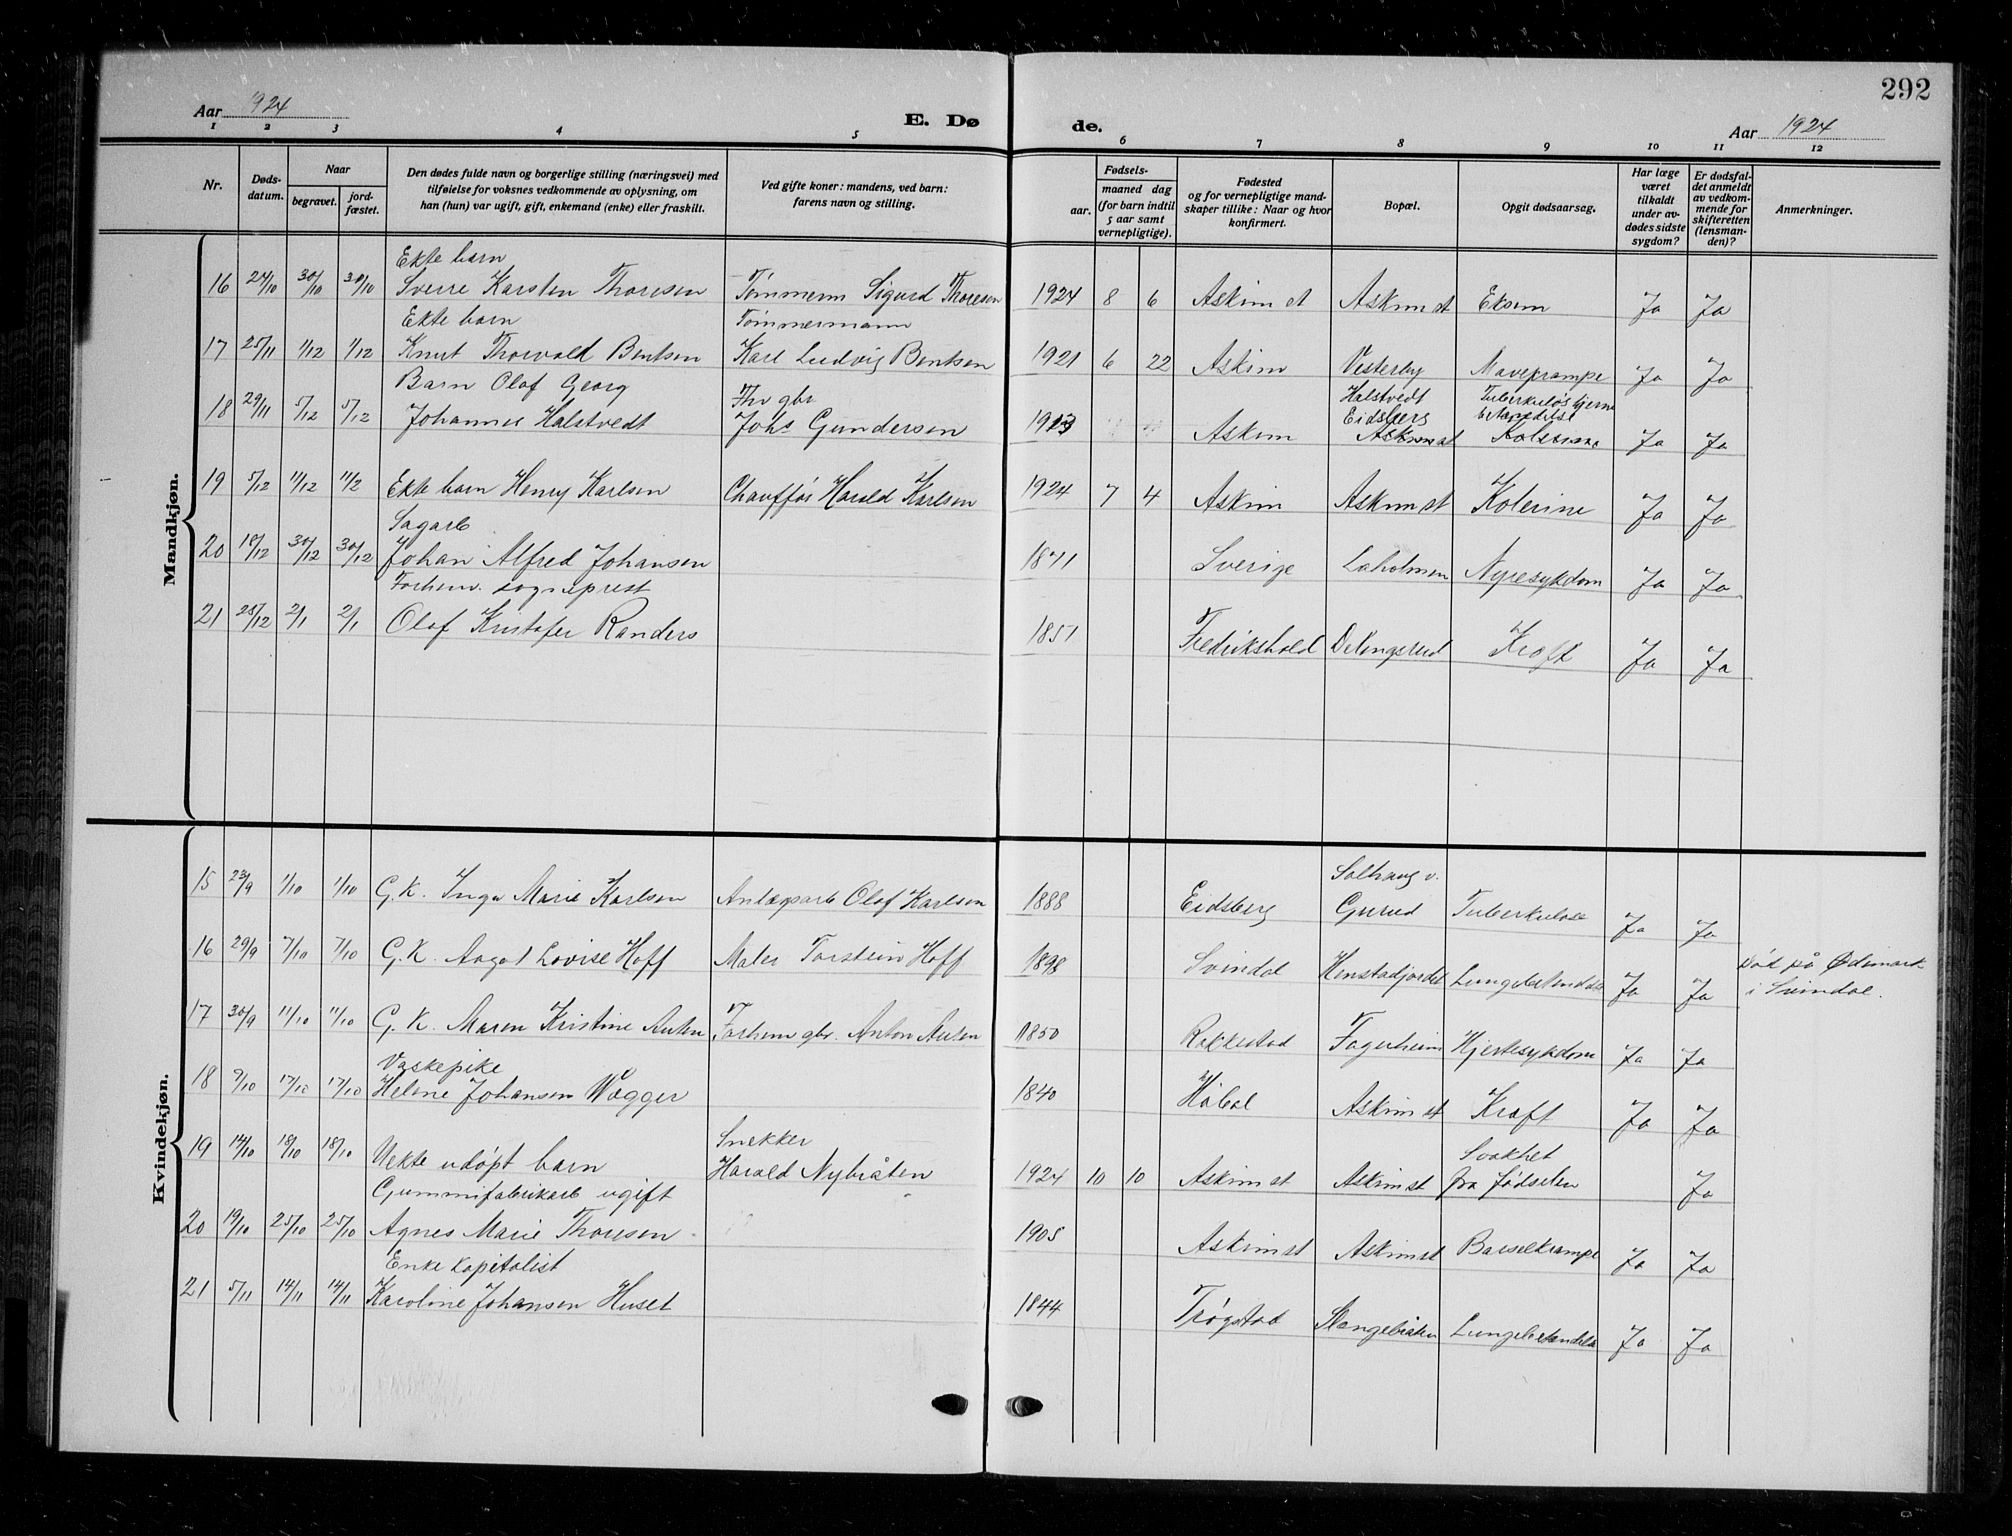 292
Aar 1924 E. Dø de. Aar 1924
1 2 3 4 5 6 7 8 9 10 11 12
Nr. Døds-datum. Naar begravet. jord-fæstet. Den dødes fulde navn og borgerlige stilling (næringsvei) med tilføielse for voksnes vedkommende av oplysning, om han (hun) var ugift, gift, enkemand (enke) eller fraskilt. Ved gifte koner: mandens, ved barn: farens navn og stilling. Fødsels- aar. maaned dag (for barn indtil 5 aar samt vernepligtige). Fødested og for vernepligtige mandskaper tillike: Naar og hvor konfirmert. Bopæl. Opgit dødsaarsag. Har læge været tilkaldt under avdødes sidste sygdom? Er dødsfaldet anmeldt av vedkommende for skifteretten (lensmanden)? Anmerkninger.
Mandkjøn.
Ekte barn
16 24/10 30/10 30/10 Sverre Karsten Thoresen Tømmerm Sigurd Thoresen 1924 8 6 Askim st Askim st Eksem Ja Ja
Ekte barn Tømmermann
17 25/11 1/12 1/12 Knut Thorvald Bentsen Karl Ludvig Bentsen 1921 6 22 Askim Vesterby Mavekrampe Ja Ja
Barn Olaf Georg Fhv gbr Halstvedt Tuberkuløs hjerne
18 29/11 5/12 5/12 Johannes Halstvedt Johs Gundersen 1913 Askim Eidsberg Ja Ja
19 5/12 11/12 11/2 Ekte barn Henry Karlsen Chauffør Harald Karlsen 1924 7 4 Askim Askim st Kolerine Ja Ja
Sagarb
20 18/12 30/12 30/12 Johan Alfred Johansen 1871 Sverige Laholmen Nyresykdom Ja Ja
Forhenv. sogneprest
21 25/12 2/1 2/1 Olaf Kristofer Randers 1851 Fredrikshald Ja Ja
Kvindekjøn.
Solhaug v.
15 23/9 1/10 1/10 G.K. Inga Marie Karlsen Anlægsarb Olaf Karlsen 1888 Eidsberg Gurud Tuberkulose Ja Ja
16 29/9 7/10 7/10 G.K. Aagot Lovise Hoff Maler Torstein Hoff 1898 Svindal Henstadjordet Lungebetændelse Ja Ja Død på Ødemark
i Svindal.
17 30/9 11/10 11/10 G.K. Maren Kristine Auten Forhenv gbr. Anton Auten 1850 Rakkestad Fagerheim Hjertesykdom Ja Ja
Vaskepike
18 9/10 17/10 17/10 Helene Johansen Wagger 1840 Håbøl Askim st Kræft Ja Ja
Snekker Svakhet
19 14/10 18/10 18/10 Uekte udøpt barn Harald Nybråten 1924 10 10 Askim st Askim st fra fødselen Ja
Gummifabrikarb ugift
20 19/10 25/10 25/10 Agnes Marie Thoresen 1905 Askim st Askim st Barselkrampe Ja Ja
Enke kapitalist
21 5/11 14/11 14/11 Karoline Johansen Huset 1844 Trøgstad Slengebråten Lungebetændelse Ja Ja